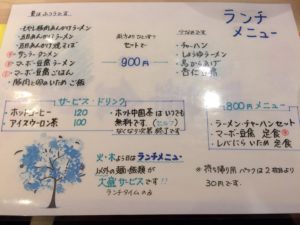 ランチメニュー
夏はふつうらーず。
・もやし豚肉あんかけラーメン
・五目あんかけラーメン
・五目あんかけ焼そば
・サンラータンメン
・マーボー豆腐ラーメン
・マーボー豆腐ごはん
・豚肉と
いため ご飯
セットで
900円
・チャーハン
・しょうゆラーメン
・鳥からあげ
・杏仁豆腐
サービス・ドリンク
・ホットコーヒー 120
・アイスウーロン茶 100
・ホット中国茶はいつでも
無料です。(セルフ)
なくなり次第終了です。
800円メニュー
・ラーメン・チャーハンセット
・マーボー豆腐 定食
・レバにらいため 定食
火・木よう日はランチメニュー
以外の麺・飯類が
大盛サービスです!!
ランチタイムのみ
※ 持ち帰り用 パックは2枚
30円です。